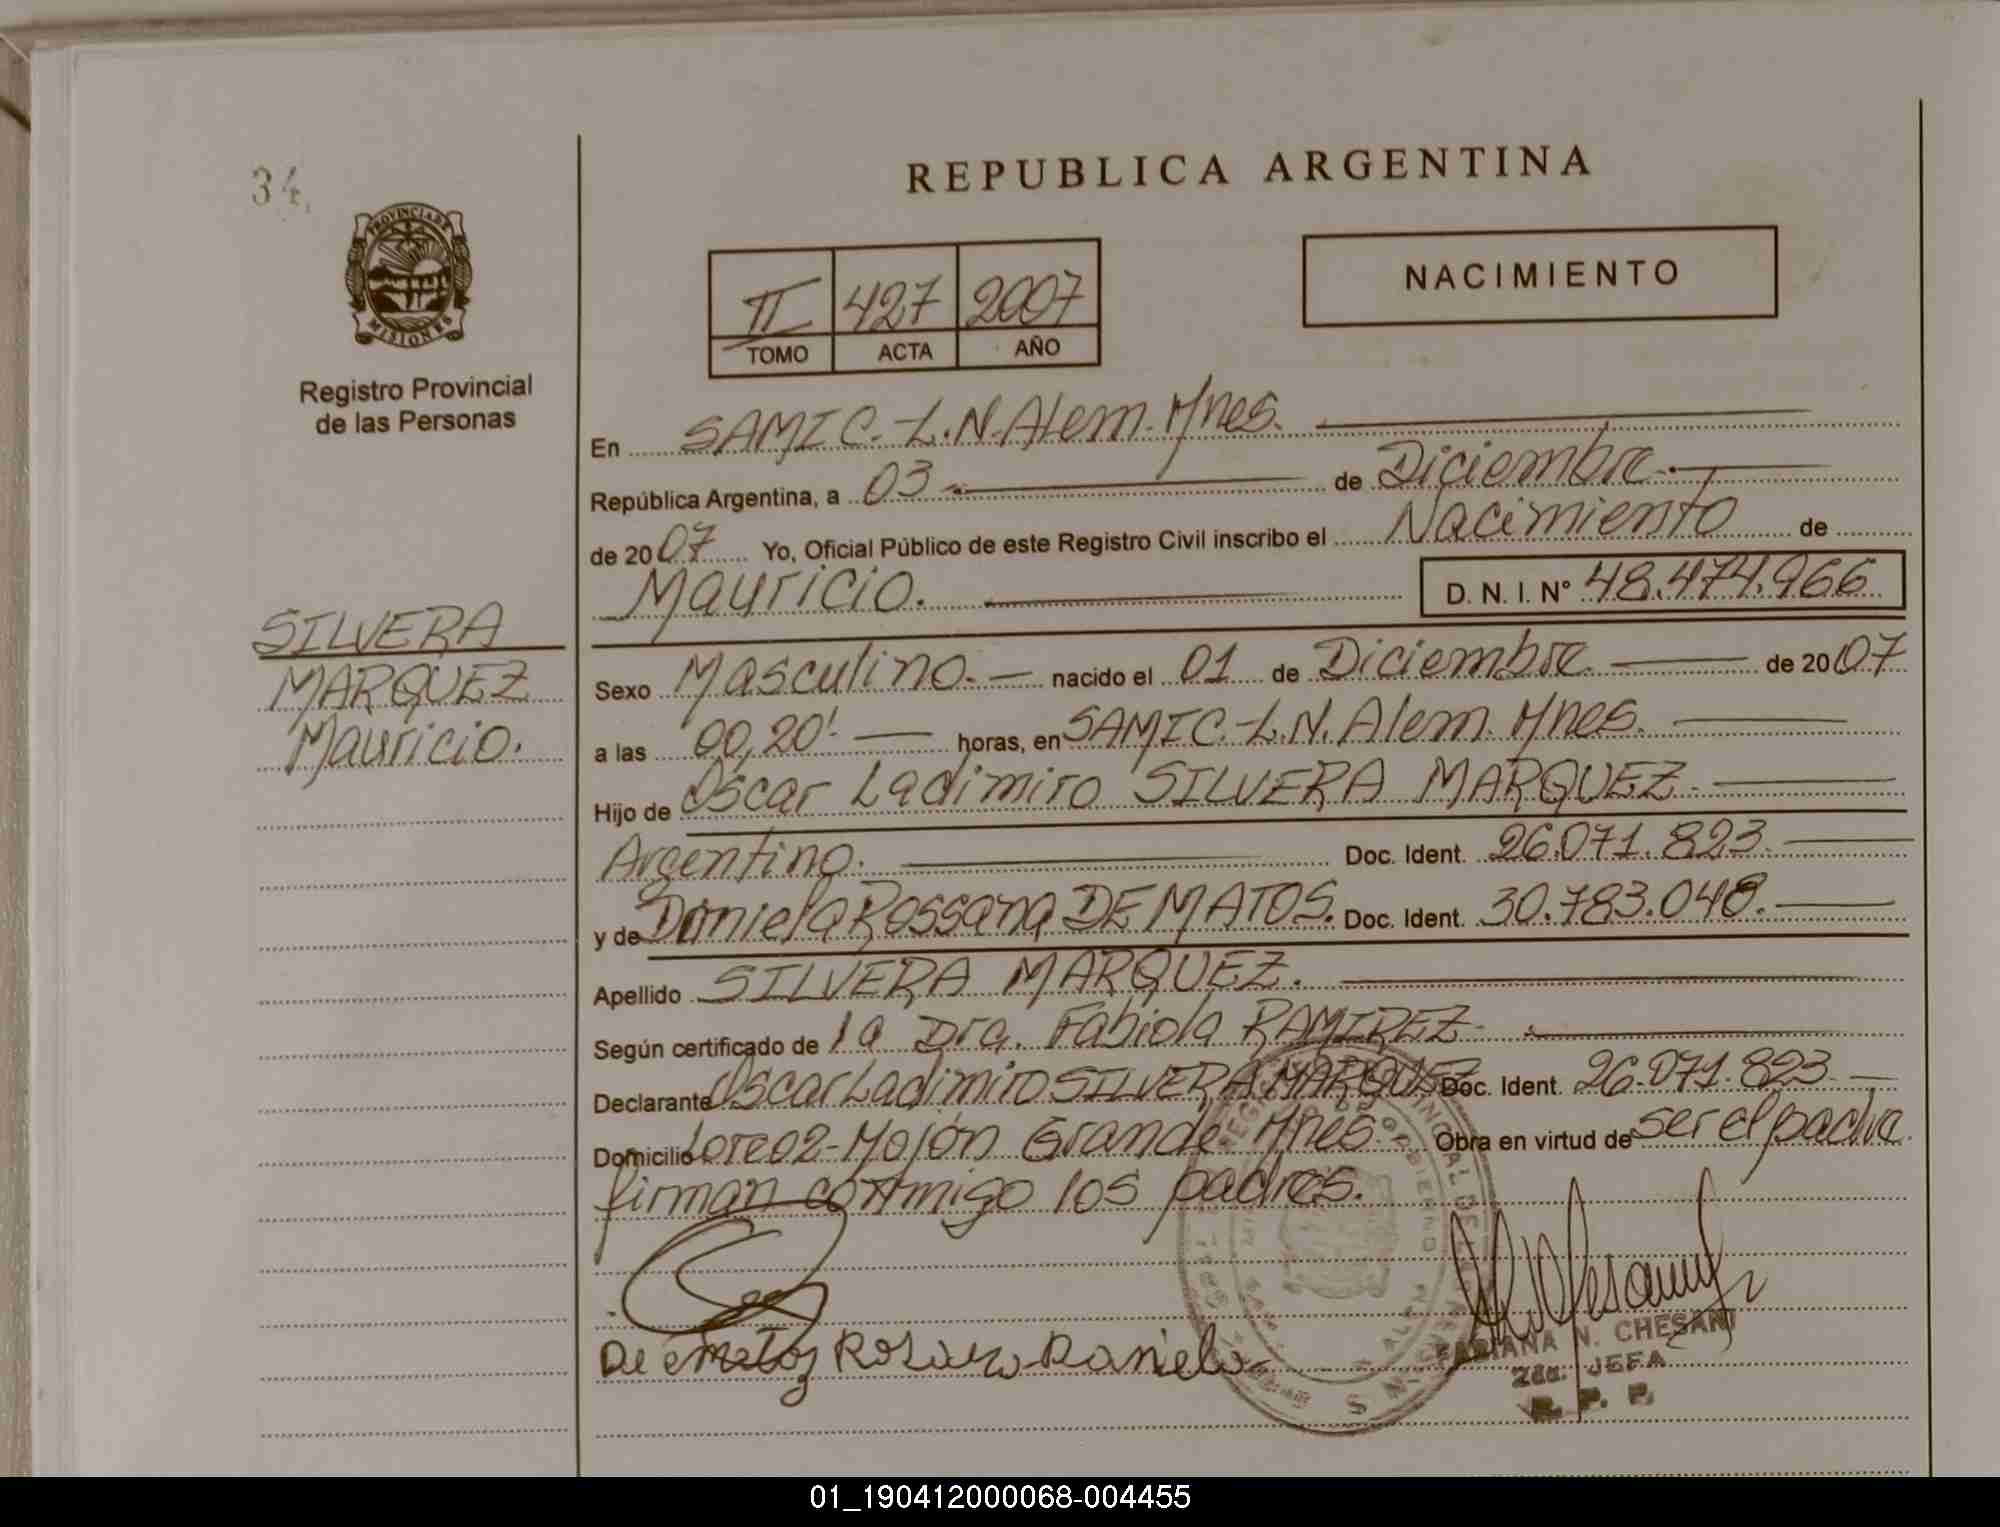 34
PROVINCIA DE
MISIONES
Registro Provincial
de las Personas
SILVERA
MARQUEZ
Mauricio.
REPUBLICA ARGENTINA
II 427 2007
TOMO ACTA AÑO
NACIMIENTO
En SAMIC.-L.N.Alem.Mnes.
República Argentina, a 03 de Diciembre.
de 2007 Yo, Oficial Público de este Registro Civil inscribo el Nacimiento de
Mauricio. D. N. I. Nº 48.474.966
Sexo Masculino. nacido el 01 de Diciembre de 2007
a las 00,20' horas, en SAMIC.-L.N.Alem. Mnes.
Hijo de Oscar Ladimiro SILVERA MARQUEZ.
Argentino. Doc. Ident. 26.071.823.
y de Daniela Rossana DE MATOS. Doc. Ident. 30.783.048.
Apellido SILVERA MARQUEZ.
Según certificado de la Dra. Fabiola RAMIREZ
Declarante Oscar Ladimiro SILVERA MARQUEZ Doc. Ident. 26.071.823
Domicilio Lote 02-Mojón Grande Mnes. Obra en virtud de ser el padre
firman conmigo los padres.
De Matos Daniela
FABIANA N. CHESANI
2da. JEFA
R. P. P.
01_190412000068-004455